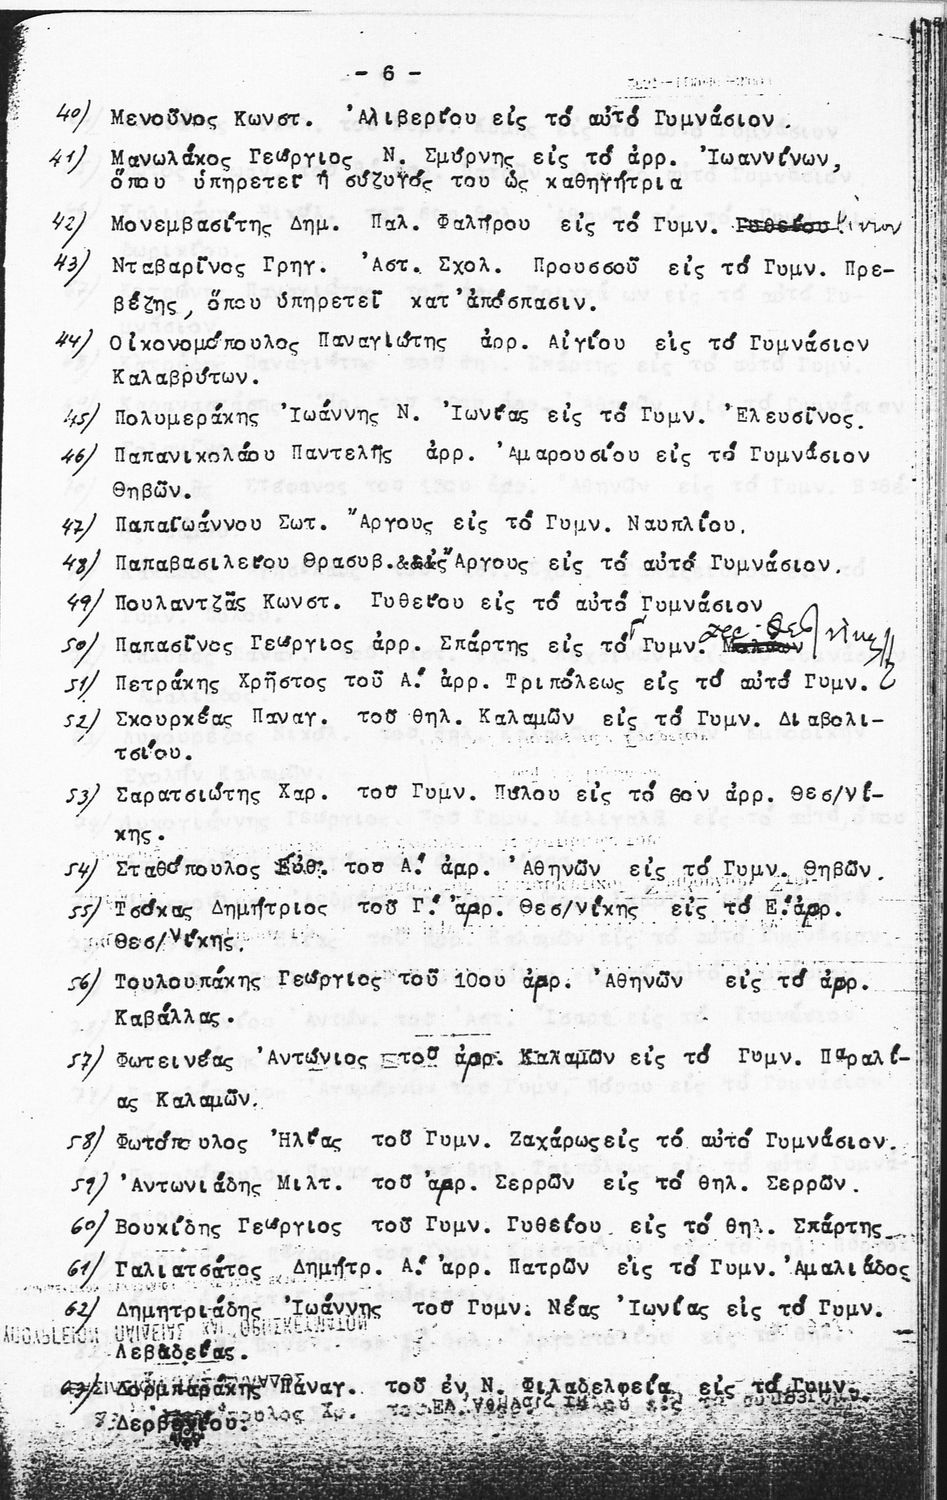 - 6 -
40) Μενοῦνος Κωνστ. Ἀλιβερίου εἰς τό αὐτό Γυμνάσιον.
41) Μανωλάκος Γεώργιος Ν. Σμύρνης εἰς τό ἀρρ. Ἰωαννίνων,
ὅπου ὑπηρετεῖ ἡ σύζυγός του ὡς καθηγήτρια
42) Μονεμβασίτης Δημ. Παλ. Φαλήρου εἰς τό Γυμν. Γυθείου
43) Νταβαρῖνος Γρηγ. Ἀστ. Σχολ. Προυσσοῦ εἰς τό Γυμν. Πρε-
βέζης, ὅπου ὑπηρετεῖ κατ'ἀπόσπασιν.
44) Οἰκονομόπουλος Παναγιώτης ἀρρ. Αἰγίου εἰς τό Γυμνάσιον
Καλαβρύτων.
45) Πολυμεράκης Ἰωάννης Ν. Ἰωνίας εἰς τό Γυμν. Ἐλευσῖνος.
46) Παπανικολάου Παντελῆς ἀρρ. Ἀμαρουσίου εἰς τό Γυμνάσιον
Θηβῶν.
47) Παπαϊωάννου Σωτ. Ἄργους εἰς τό Γυμν. Ναυπλίου.
48) Παπαβασιλείου Θρασυβ. Ἄργους εἰς τό αὐτό Γυμνάσιον.
49) Πουλαντζᾶς Κωνστ. Γυθείου εἰς τό αὐτό Γυμνάσιον
50) Παπασῖνος Γεώργιος ἀρρ. Σπάρτης εἰς τό Γυμν. Μολάων
51) Πετράκης Χρῆστος τοῦ Α! ἀρρ. Τριπόλεως εἰς τό αὐτό Γυμν.
52) Σκουρκέας Παναγ. τοῦ θηλ. Καλαμῶν εἰς τό Γυμν. Διαβολι-
τσίου.
53) Σαρατσιώτης Χαρ. τοῦ Γυμν. Πύλου εἰς τό 6ον ἀρρ. Θεσ/νί-
κης.
54) Σταθόπουλος Εὐθ. τοῦ Α! ἀρρ. Ἀθηνῶν εἰς τό Γυμν. Θηβῶν.
55) Τσόκας Δημήτριος τοῦ Γ! ἀρρ. Θεσ/νίκης εἰς τό Ε! ἀρρ.
Θεσ/νίκης.
56) Τουλουπάκης Γεώργιος τοῦ 10ου ἀρρ. Ἀθηνῶν εἰς τό ἀρρ.
Καβάλλας.
57) Φωτεινέας Ἀντώνιος τοῦ ἀρρ. Καλαμῶν εἰς τό Γυμν. Παραλί-
ας Καλαμῶν.
58) Φωτόπουλος Ἠλίας τοῦ Γυμν. Ζαχάρως εἰς τό αὐτό Γυμνάσιον.
59) Ἀντωνιάδης Μιλτ. τοῦ ἀρρ. Σερρῶν εἰς τό θηλ. Σερρῶν.
60) Βουκίδης Γεώργιος τοῦ Γυμν. Γυθείου εἰς τό θηλ. Σπάρτης
61) Γαλιατσᾶτος Δημήτρ. Α! ἀρρ. Πατρῶν εἰς τό Γυμν. Ἀμαλιάδος
62) Δημητριάδης Ἰωάννης τοῦ Γυμν. Νέας Ἰωνίας εἰς τό Γυμν.
Λεβαδείας.
63) Δορμπαράκης Παναγ. τοῦ ἐν Ν. Φιλαδελφείᾳ εἰς τό Γυμν.
Δερβενίου.